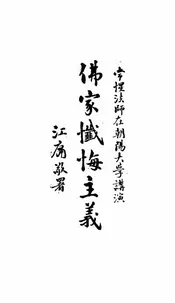 寧惺法師在朝陽大學講演
佛家懺悔主義
江庸敬署